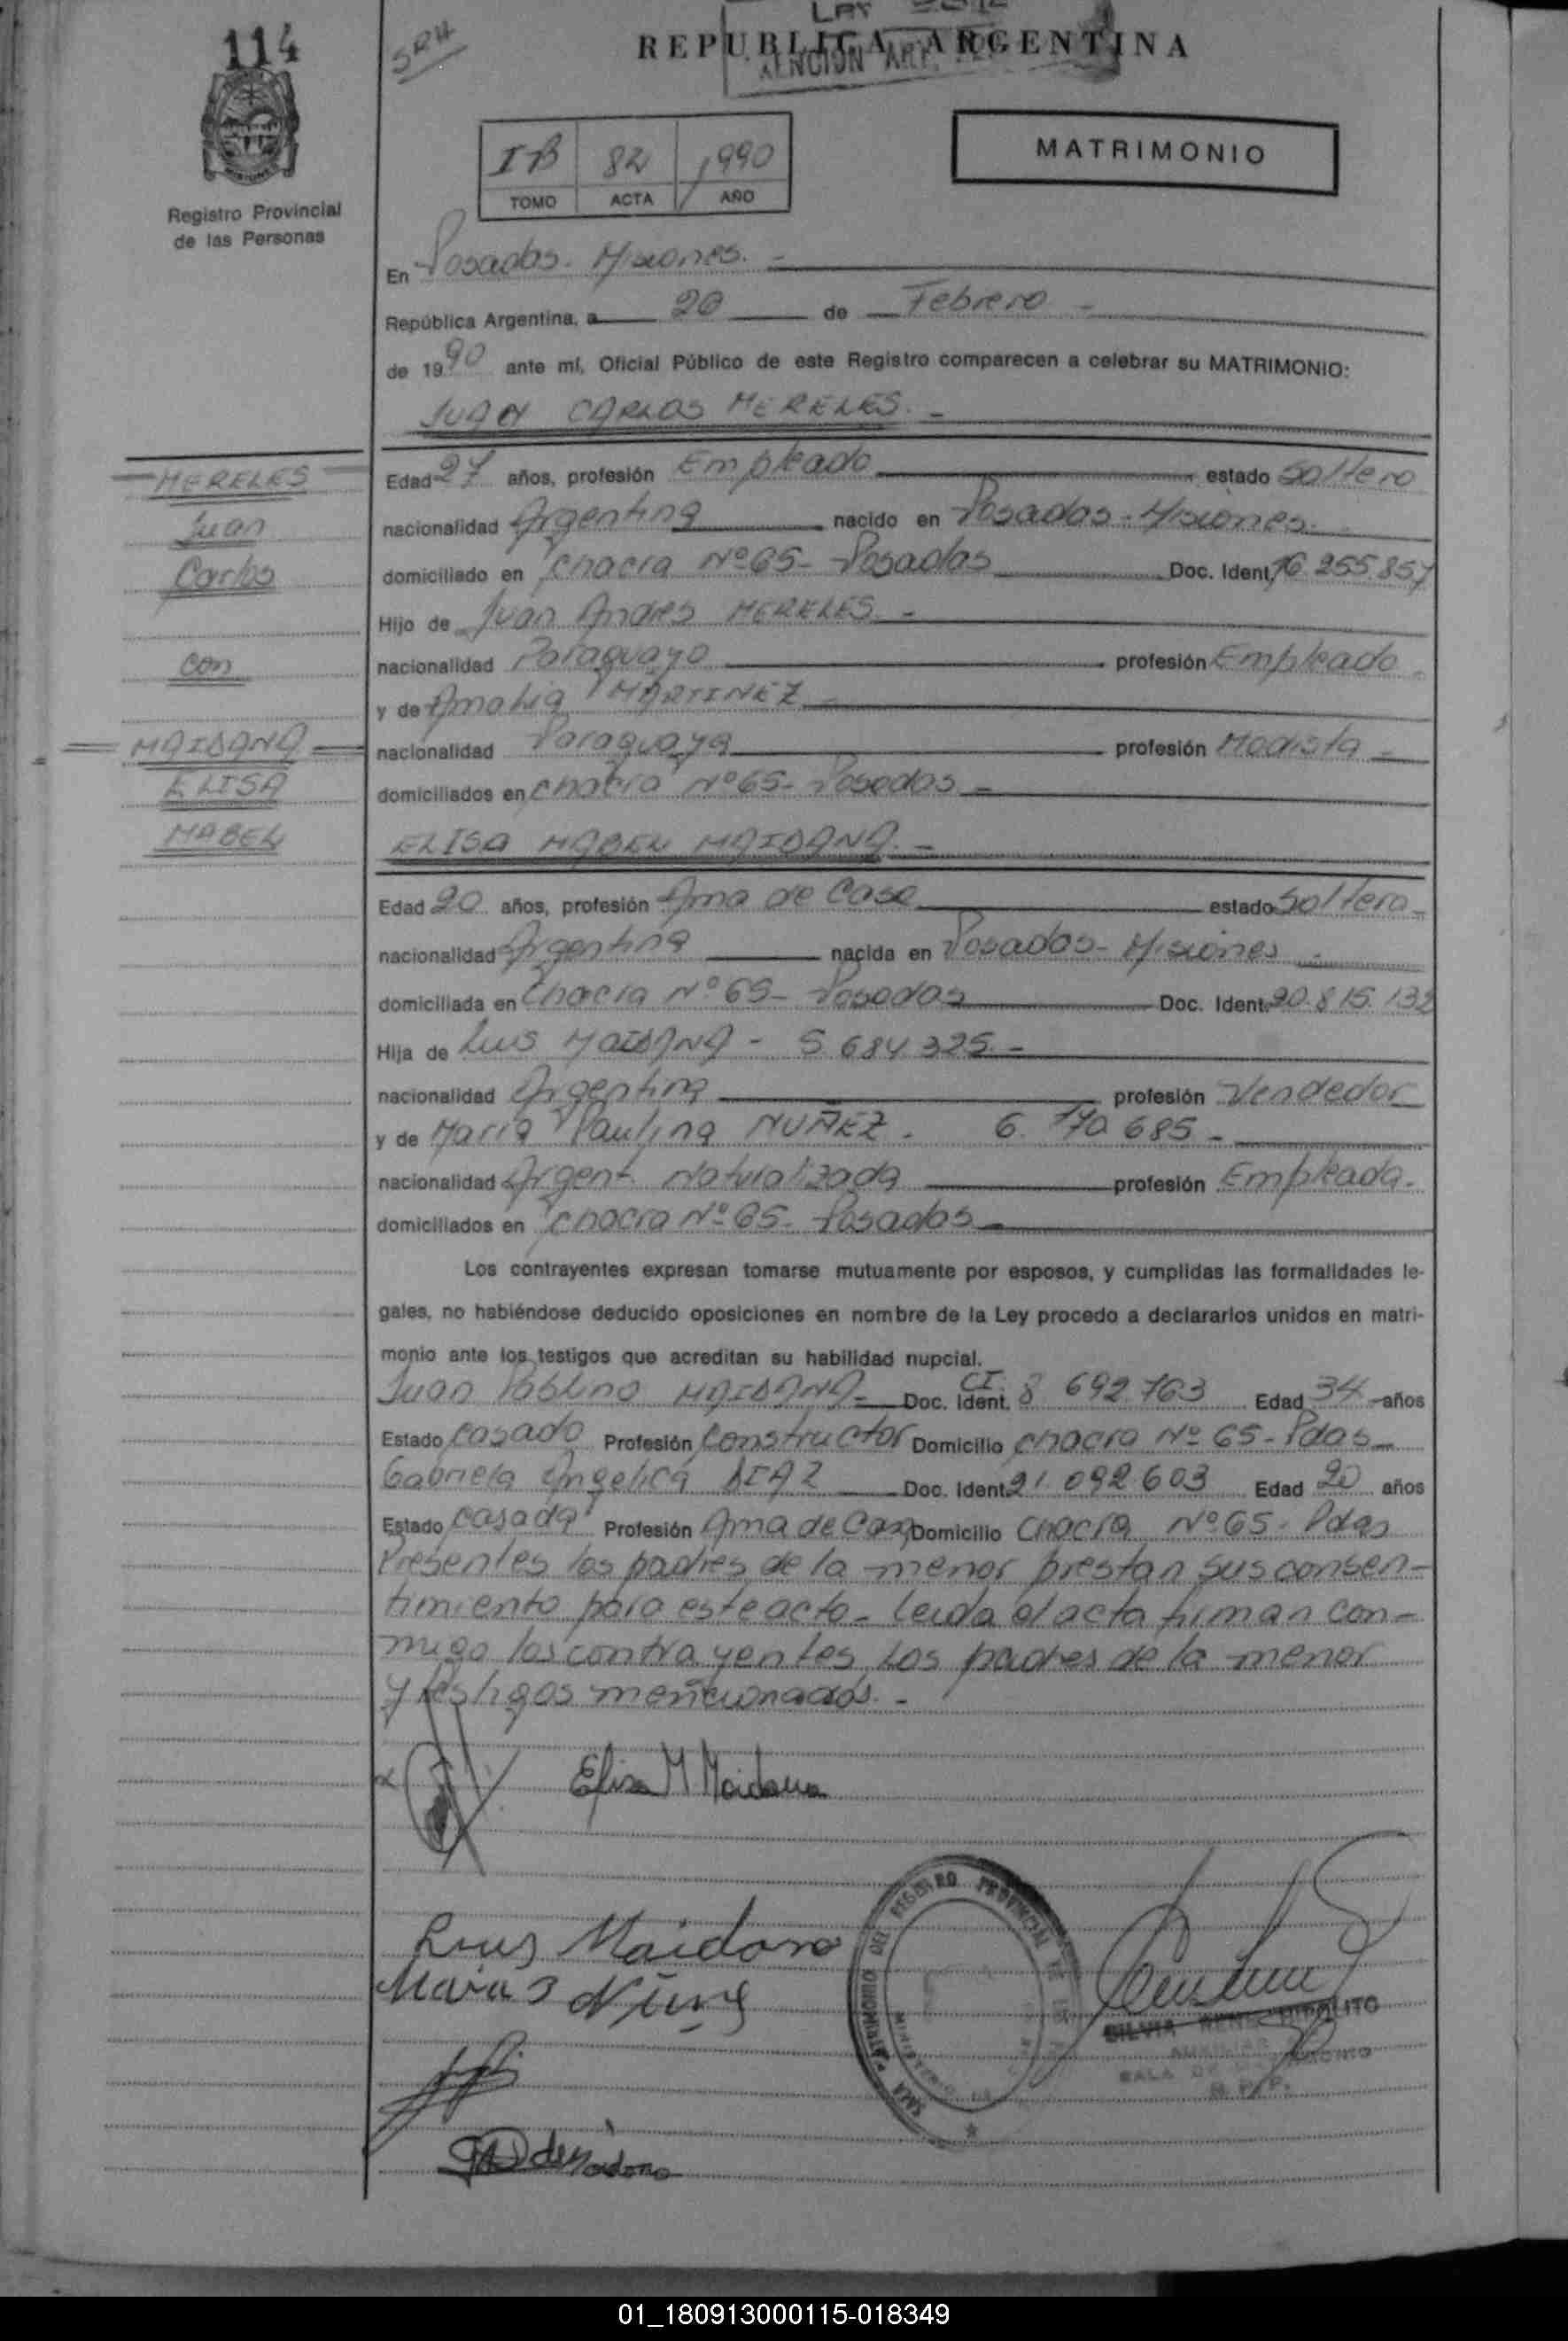 114
SRH
LEY
REPUBLICA ARGENTINA
ATENCION ART.
IB 82 1990
TOMO ACTA AÑO
MATRIMONIO
Registro Provincial
de las Personas
En Posadas. Misiones.-
República Argentina, a 20 de Febrero-
de 1990 ante mí, Oficial Público de este Registro comparecen a celebrar su MATRIMONIO:
JUAN CARLOS MERELES.-
MERELES
Juan
Carlos
con
MAIDANA
ELISA
MABEL
Edad 27 años, profesión Empleado estado Soltero
nacionalidad Argentina nacido en Posadas-Misiones.
domiciliado en Chacra Nº 65- Posadas Doc. Ident. 16.255.857
Hijo de Juan Andres MERELES.-
nacionalidad Paraguayo profesión Empleado
y de Amalia MARTINEZ-
nacionalidad Paraguaya profesión Modista-
domiciliados en Chacra Nº 65- Posadas-
ELISA MABEL MAIDANA.-
Edad 20 años, profesión Ama de Casa estado Soltera-
nacionalidad Argentina nacida en Posadas- Misiones-
domiciliada en Chacra Nº 65- Posadas Doc. Ident. 20.815.132
Hija de Luis MAIDANA - 5.684.325.-
nacionalidad Argentina profesión Vendedor
y de Maria Paulina NUÑEZ. 6.170.685-
nacionalidad Argent. Naturalizada profesión Empleada.
domiciliados en Chacra Nº 65- Posadas-
Los contrayentes expresan tomarse mutuamente por esposos, y cumplidas las formalidades le-
gales, no habiéndose deducido oposiciones en nombre de la Ley procedo a declararlos unidos en matri-
monio ante los testigos que acreditan su habilidad nupcial.
Juan Pablino MAIDANA- Doc. Ident. CI. 8.692.763 Edad 34 años
Estado casado Profesión Constructor Domicilio chacra Nº 65-Pdas
Gabriela Angelica DIAZ Doc. Ident. 21.092.603 Edad 20 años
Estado casada Profesión Ama de Casa Domicilio Chacra Nº 65- Pdas
Presentes los padres de la menor prestan sus consen-
timiento para este acto- leida el acta firman con-
migo los contrayentes, los padres de la menor
y testigos mencionados.-
Elisa M Maidana
Luis Maidana
Maria Nuñez
SALA MATRIMONIO DEL REGISTRO PROVINCIAL DE LAS
MINISTERIO DE
SILVIA RENE HIPOLITO
AUXILIAR
SALA DE MATRIMONIO
R.P.P.
de Maidana
01_180913000115-018349